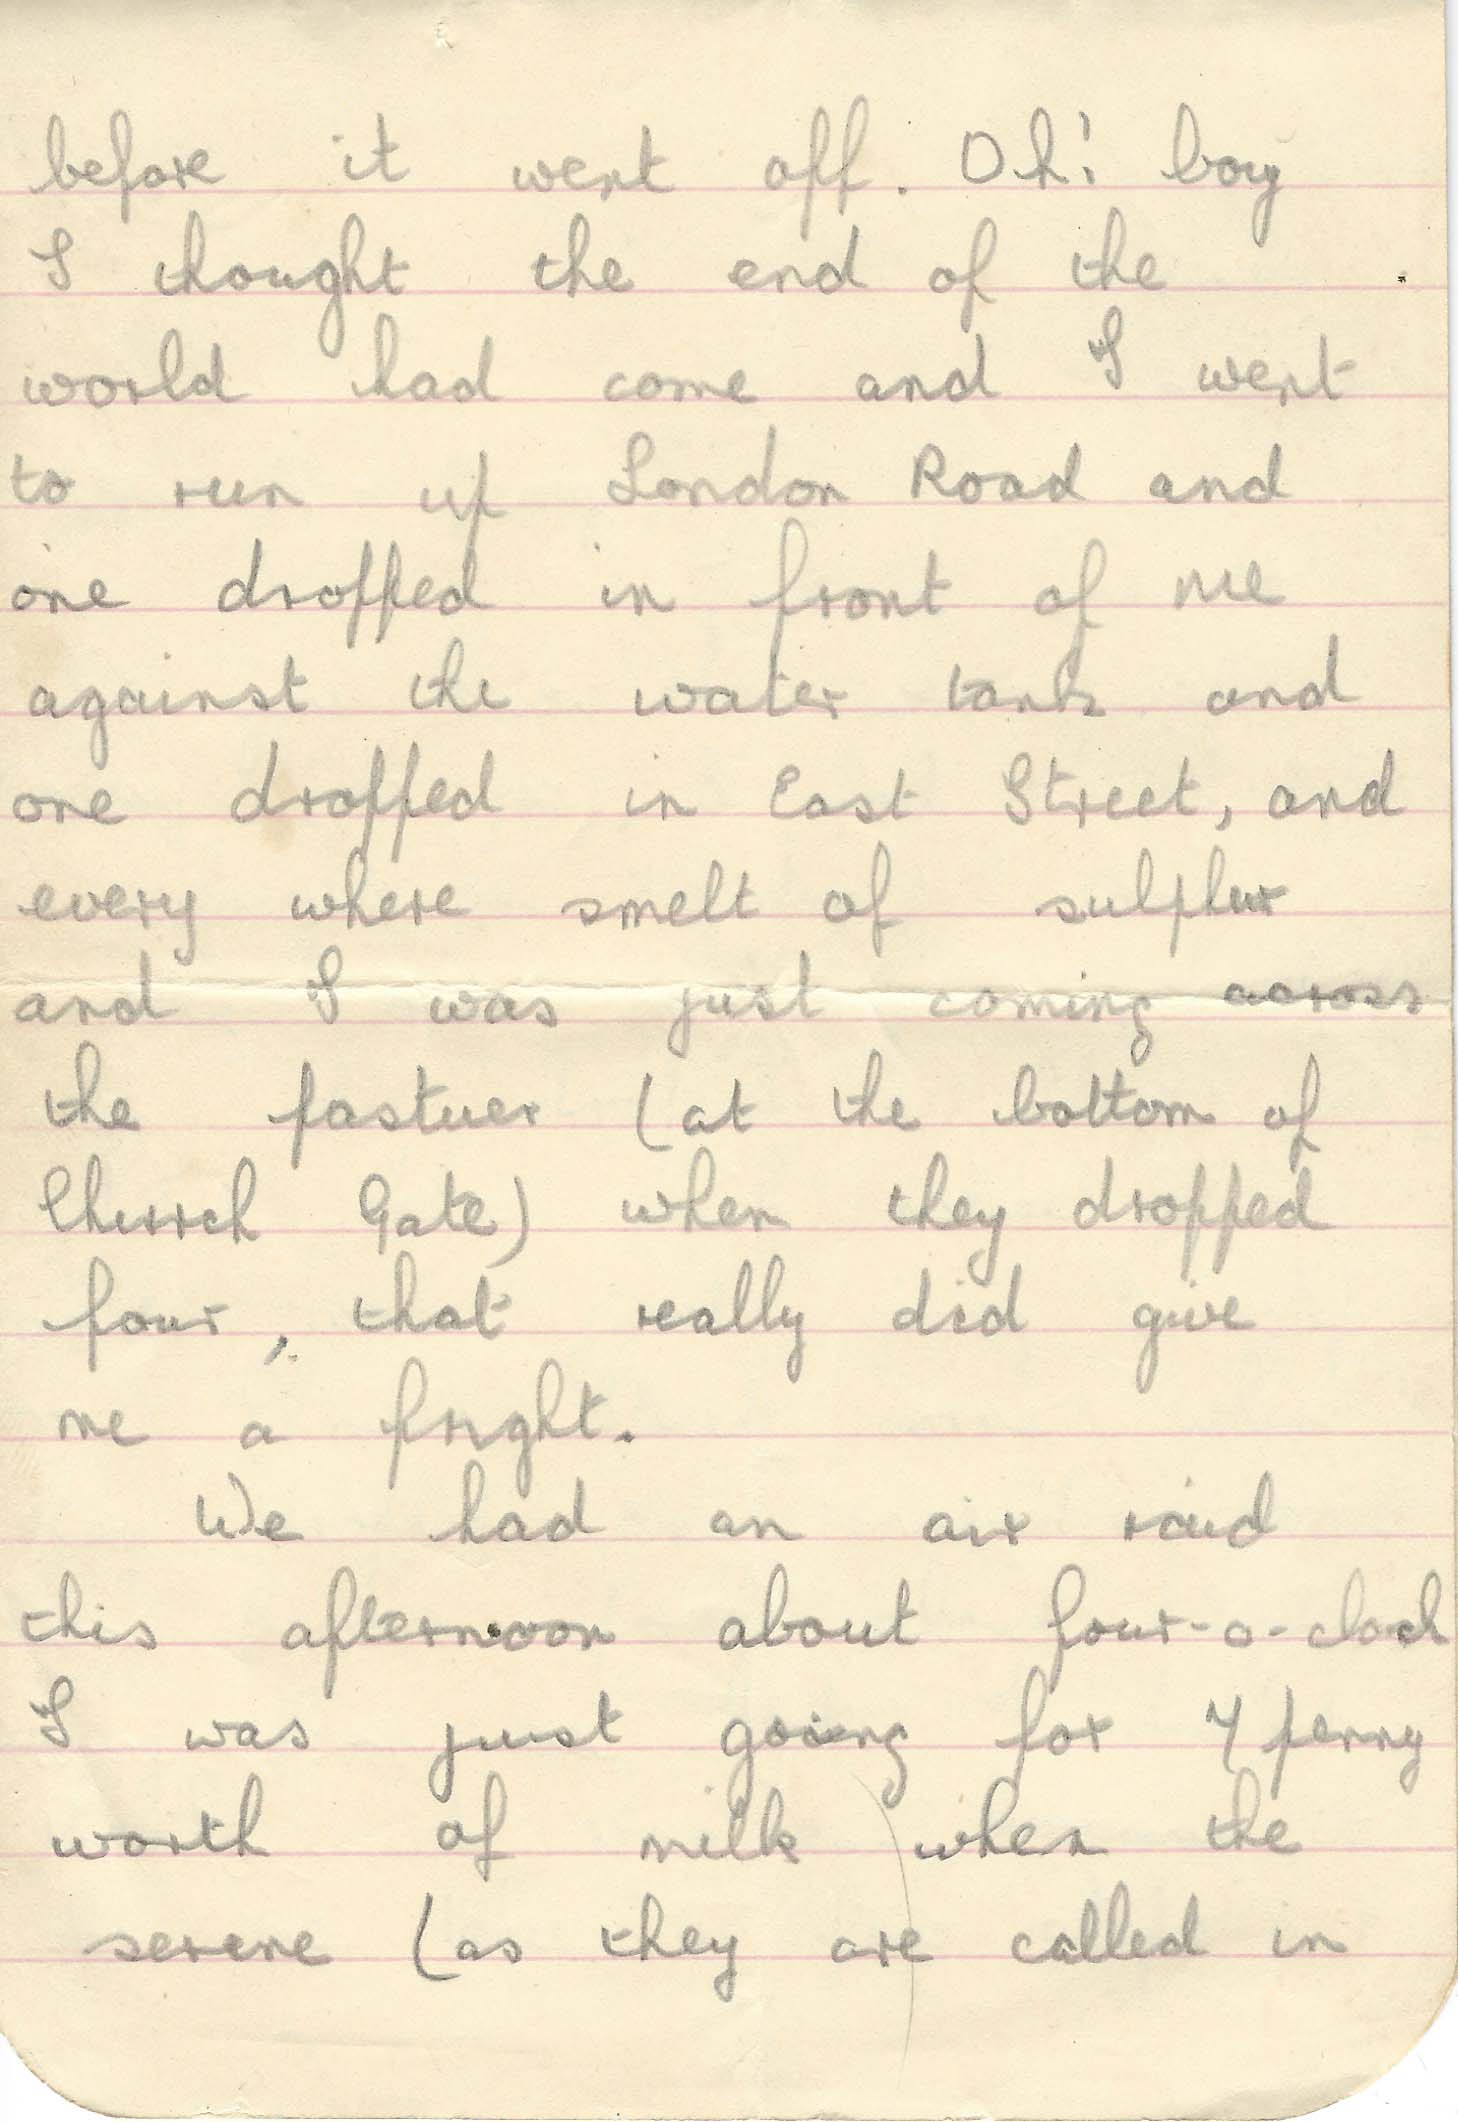 before it went off. Oh! boy
I thought the end of the
world had come and I went
to run up London Road and
one dropped in front of me
against the water tank and
one dropped in East Street, and
every where smelt of sulphur
and I was just coming across
the pastuer (at the bottom of
Church Gate) when they dropped
four, that really did give
me a fright.
We had an air raid
this afternoon about four-o-clock
I was just going for 7 penny
worth of milk when the
serene (as they are called in